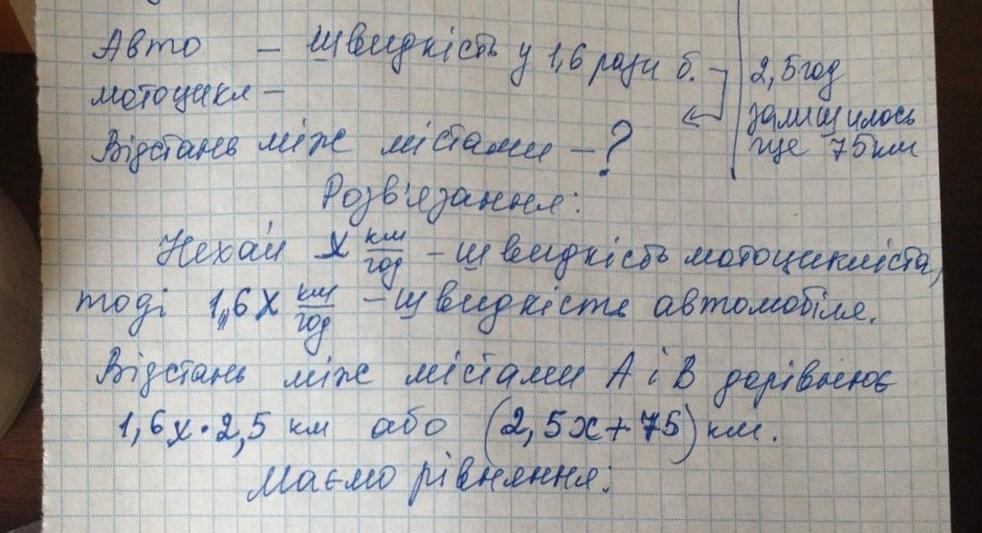 Авто – швидкість у 1,6 рази б.
мотоцикл –
2,5 год
залишилось
ще 75 км
Відстань між містами – ?
Розв'язання:
Нехай х км/год – швидкість мотоцикліста,
тоді 1,6х км/год – швидкість автомобіля.
Відстань між містами А і В дорівнює
1,6х·2,5 км або (2,5х+75) км.
Маємо рівняння: